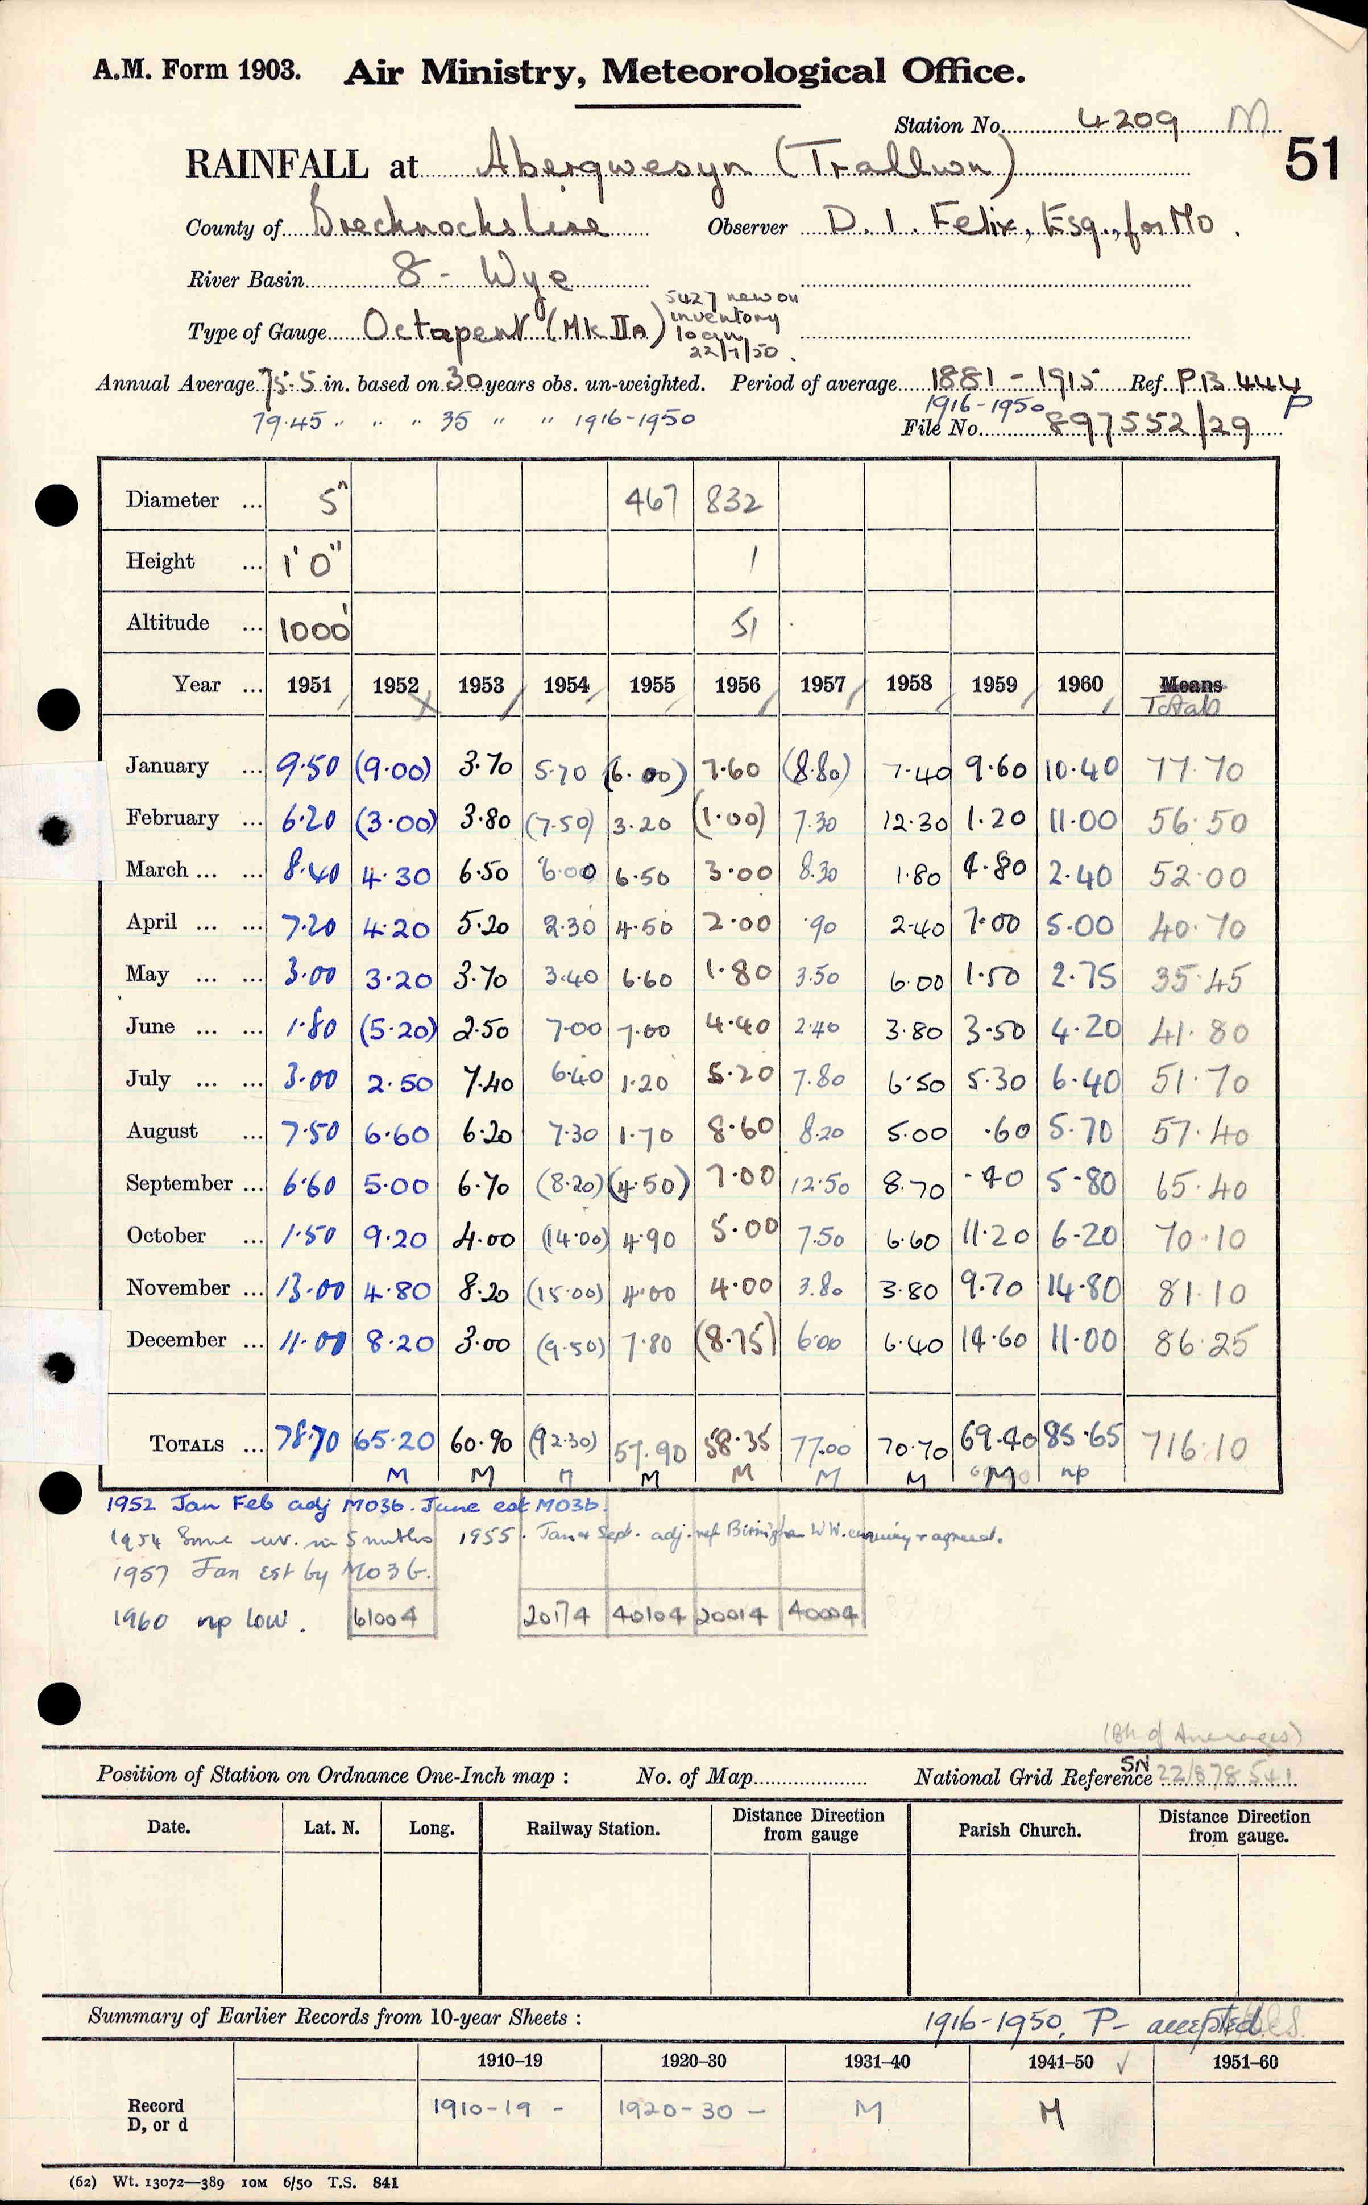 A.M. Form 1903. Air Ministry, Meteorological Office.
Station No. 4209 M
51
RAINFALL at Abergwesyn (Trallwn)
County of Brecknockshire Observer D. I. Felix, Esq., for MO.
River Basin 8 - Wye
Type of Gauge Octapent (Mk IIA) 5427 new on inventory loan 22/7/50.
Annual Average 75.5 in. based on 30 years obs. un-weighted. Period of average 1881-1915 Ref. PB 444
79.45 " " " 35 " " 1916-1950 1916-1950 P
File No. 897552/29
Diameter ... 5" 467 832
Height ... 1'0" 1
Altitude ... 1000' 51
Year ... 1951 1952 1953 1954 1955 1956 1957 1958 1959 1960 Means Totals
January ... 9.50 (9.00) 3.70 5.70 (6.00) 7.60 (8.80) 7.40 9.60 10.40 77.70
February ... 6.20 (3.00) 3.80 (7.50) 3.20 (1.00) 7.30 12.30 1.20 11.00 56.50
March ... ... 8.40 4.30 6.50 6.00 6.50 3.00 8.30 1.80 4.80 2.40 52.00
April ... ... 7.20 4.20 5.20 2.30 4.50 2.00 .90 2.40 7.00 5.00 40.70
May ... ... 3.00 3.20 3.70 3.40 6.60 1.80 3.50 6.00 1.50 2.75 35.45
June ... ... 1.80 (5.20) 2.50 7.00 7.00 4.40 2.40 3.80 3.50 4.20 41.80
July ... ... 3.00 2.50 7.40 6.40 1.20 5.20 7.80 6.50 5.30 6.40 51.70
August ... 7.50 6.60 6.20 7.30 1.70 8.60 8.20 5.00 .60 5.70 57.40
September ... 6.60 5.00 6.70 (8.20) (4.50) 7.00 12.50 8.70 .40 5.80 65.40
October ... 1.50 9.20 4.00 (14.00) 4.90 5.00 7.50 6.60 11.20 6.20 70.10
November ... 13.00 4.80 8.20 (15.00) 4.00 4.00 3.80 3.80 9.70 14.80 81.10
December ... 11.00 8.20 3.00 (9.50) 7.80 (8.75) 6.00 6.40 14.60 11.00 86.25
TOTALS ... 78.70 65.20 60.90 (92.30) 57.90 58.35 77.00 70.70 69.40 85.65 716.10
M M M M M M M M np
1952 Jan Feb adj MO3b. June est MO3b.
1954 Some in 5 mnths 1955. Jan & Sept. adj. ref WW. enquiry & agreed.
1957 Jan est by MO3b.
1960 np low. 61004 20174 40104 20014 40004
(Bk of Averages)
Position of Station on Ordnance One-Inch map : No. of Map National Grid Reference SN 22/878541
Date. Lat. N. Long. Railway Station. Distance Direction from gauge Parish Church. Distance Direction from gauge.
Summary of Earlier Records from 10-year Sheets : 1916-1950, P- accepted
1910-19 1920-30 1931-40 1941-50 ✓ 1951-60
Record D, or d 1910-19 - 1920-30 - M M
(62) Wt. 13072—389 10M 6/50 T.S. 841